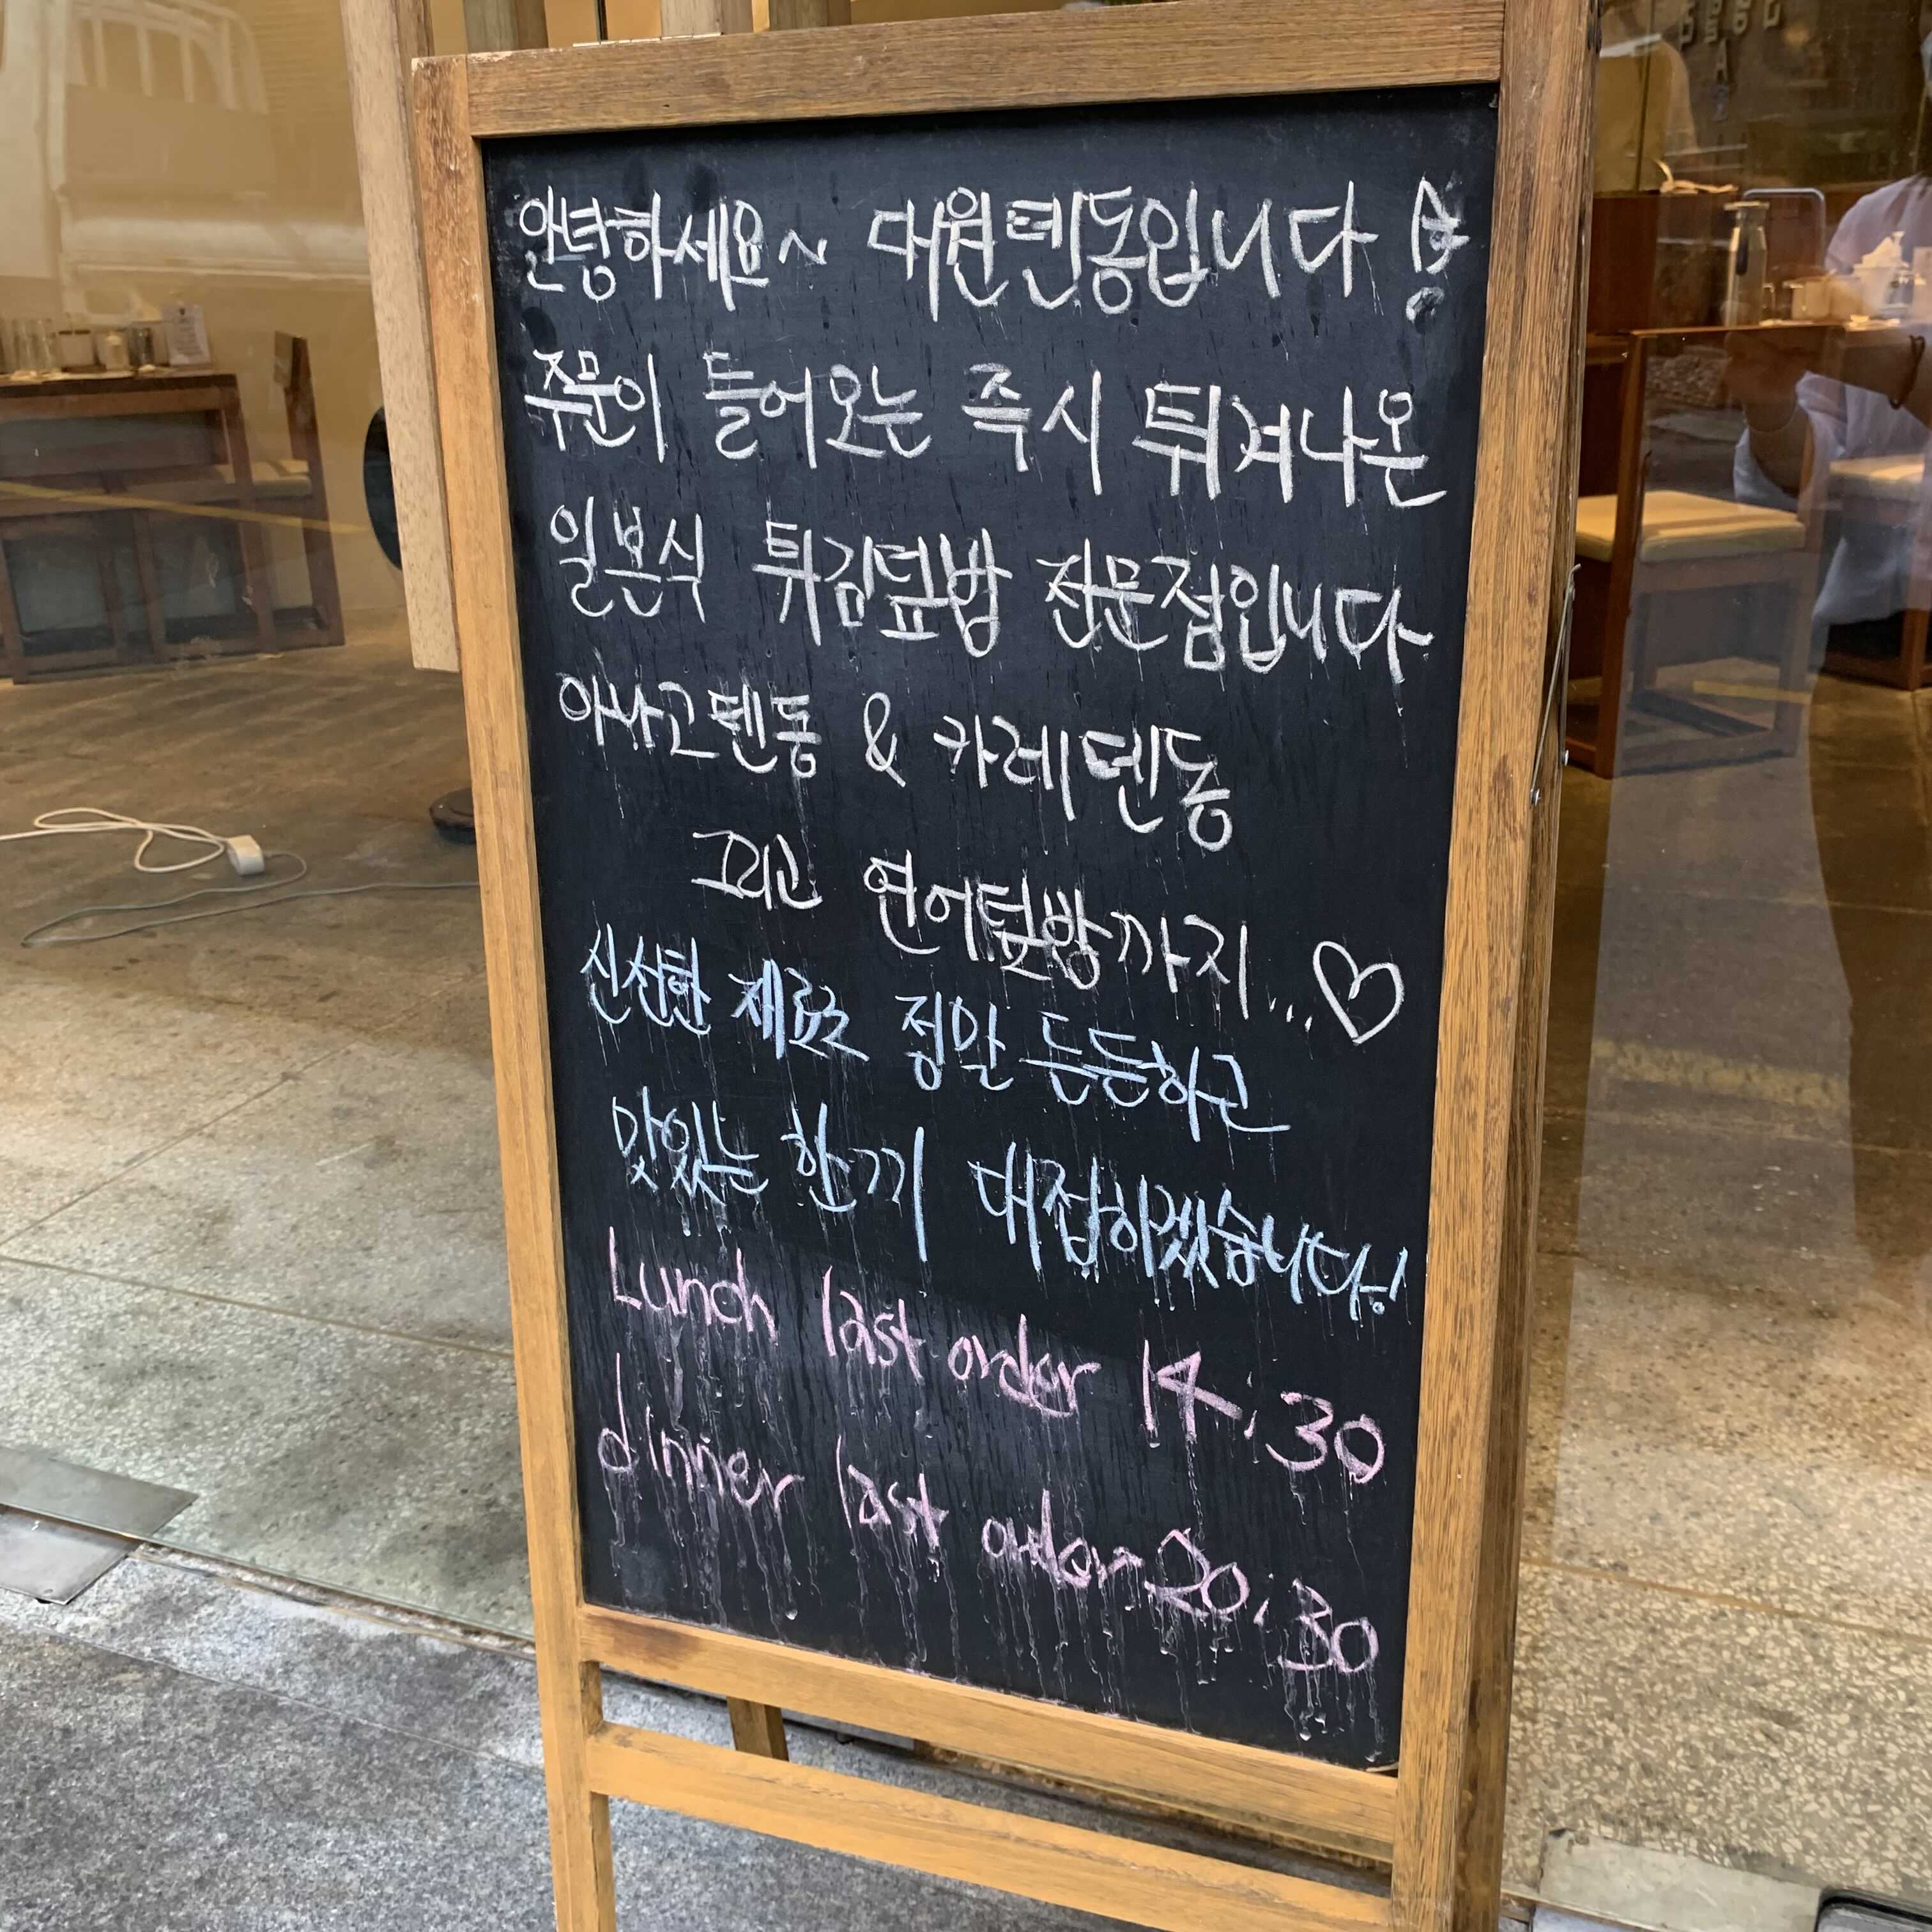 안녕하세요~ 대원텐동입니다!
주문이 들어오는 즉시 튀겨나온
일본식 튀김덮밥 전문점입니다
아나고텐동 & 카레텐동
그리고 연어덮밥까지...♡
신선한 재료로 정말 든든하고
맛있는 한끼 대접하겠습니다!
Lunch last order 14:30
dinner last order 20:30